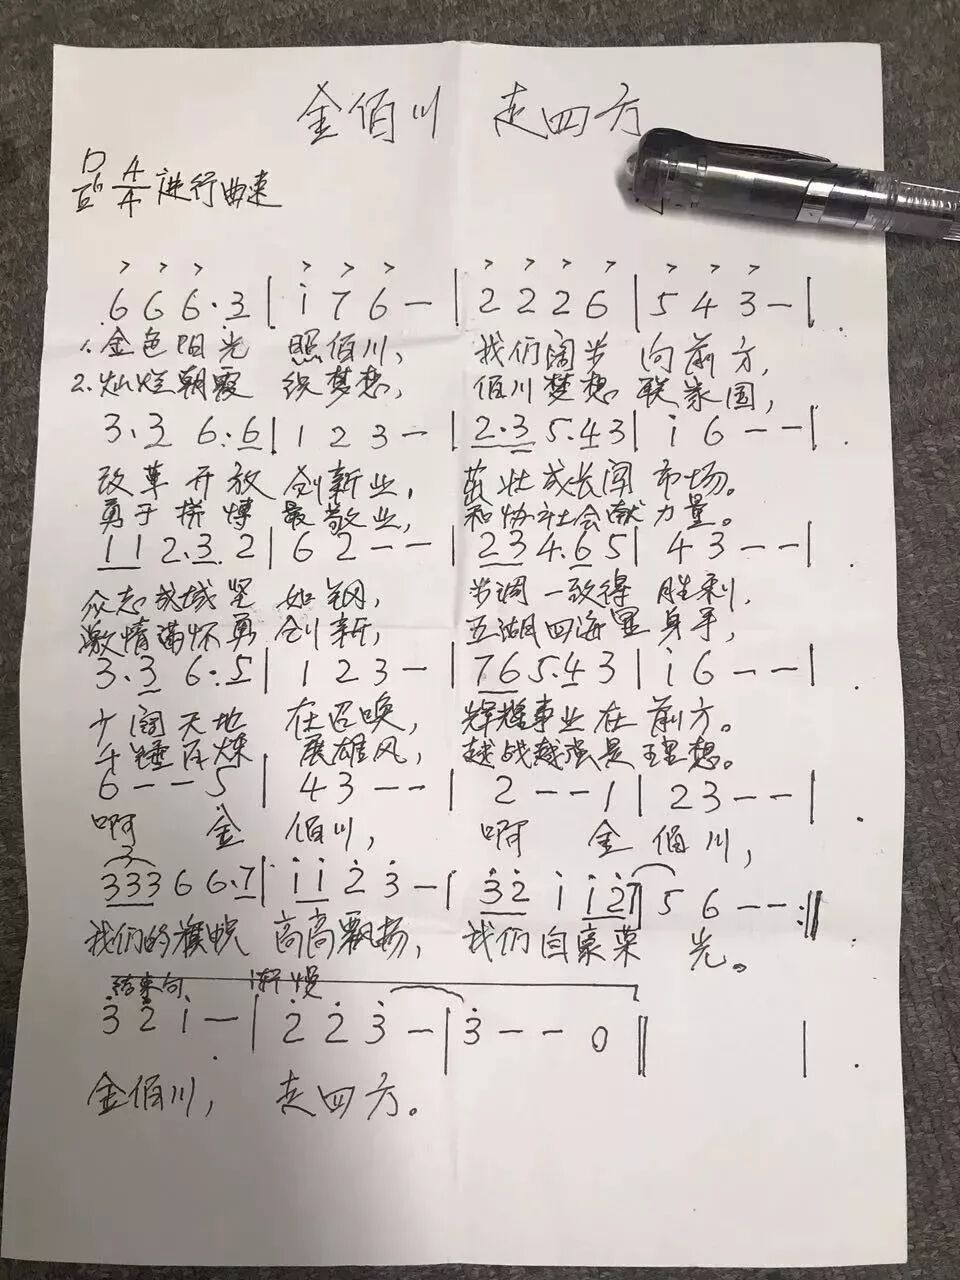 金佰川 走四方
D/bE 4/4 进行曲速
6 6 6·3 | i 7 6 — | 2 2 2 6 | 5 4 3 — |
1.金色阳光 照佰川， 我们阔步 向前方，
2.灿烂朝霞 织梦想， 佰川梦想 联家国，
3·3 6·6 | 1 2 3 — | 2·3 5·4 3 | i 6 — — |
改革开放 创新业， 茁壮成长闯 市场。
勇于拼博 最敬业， 和协社会献 力量。
1 1 2·3 2 | 6 2 — — | 2 3 4·6 5 | 4 3 — — |
众志成城坚 如钢， 步调一致得 胜利，
激情满怀勇 创新， 五湖四海显 身手，
3·3 6·5 | 1 2 3 — | 7 6 5·4 3 | i 6 — — |
广阔天地 在召唤， 辉煌事业在 前方。
千锤百炼 展雄风， 越战越强是 理想。
6 — — 5 | 4 3 — — | 2 — — 1 | 2 3 — — |
啊 金 佰川， 啊 金 佰川，
3
3 3 3 6 6·7 | i i 2 3 — | 3 2 i i 2 7 | 5 6 — — :‖
我们的旗帜 高高飘扬， 我们自豪荣 光。
结束句 渐慢
3 2 i — | 2 2 3 — | 3 — — 0 ‖
金佰川， 走四方。